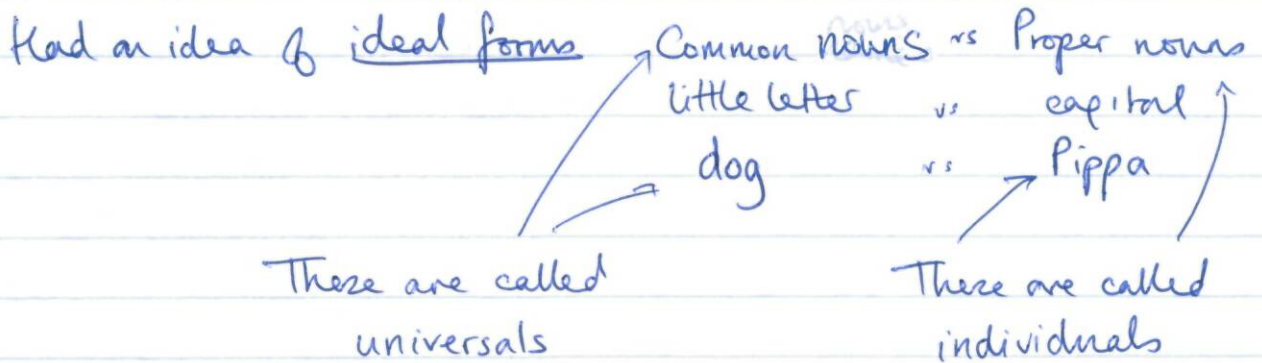 Had an idea of ideal forms Common nouns vs Proper nouns
little letter vs capital
dog vs Pippa
These are called These are called
universals individuals